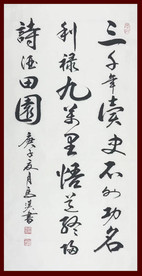 三千年讀史不外功名
利祿九萬里悟道終歸
詩酒田園
庚子夏月